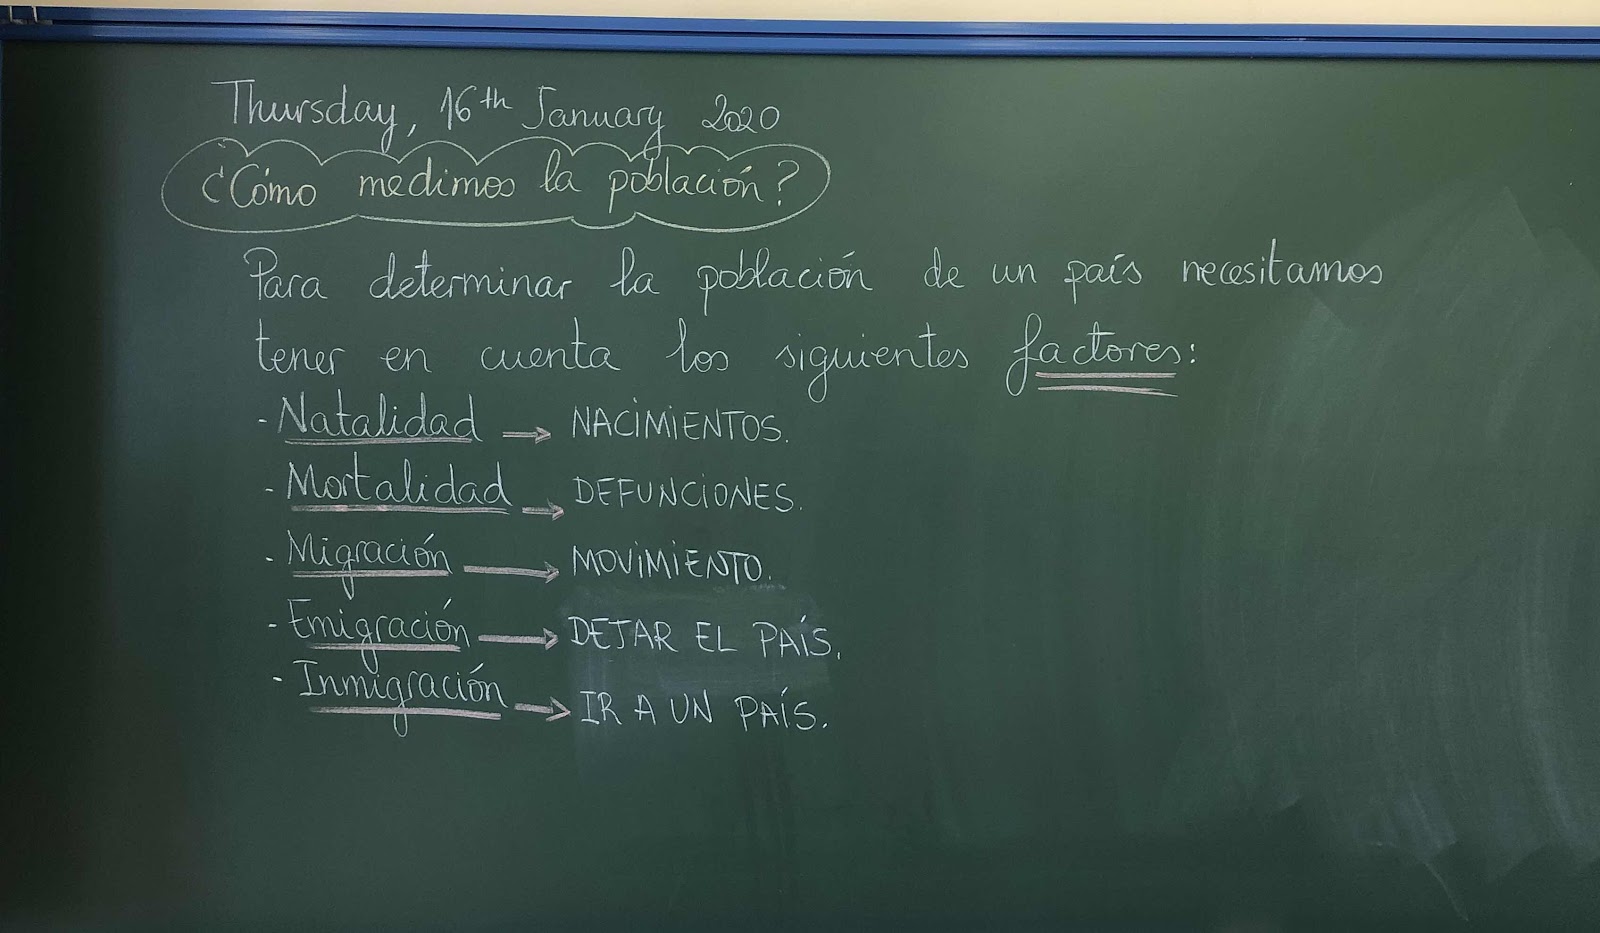 Thursday, 16th January 2020
¿Cómo medimos la población?
Para determinar la población de un país necesitamos
tener en cuenta los siguientes factores:
- Natalidad → NACIMIENTOS.
- Mortalidad → DEFUNCIONES.
- Migración → MOVIMIENTO.
- Emigración → DEJAR EL PAÍS.
- Inmigración → IR A UN PAÍS.